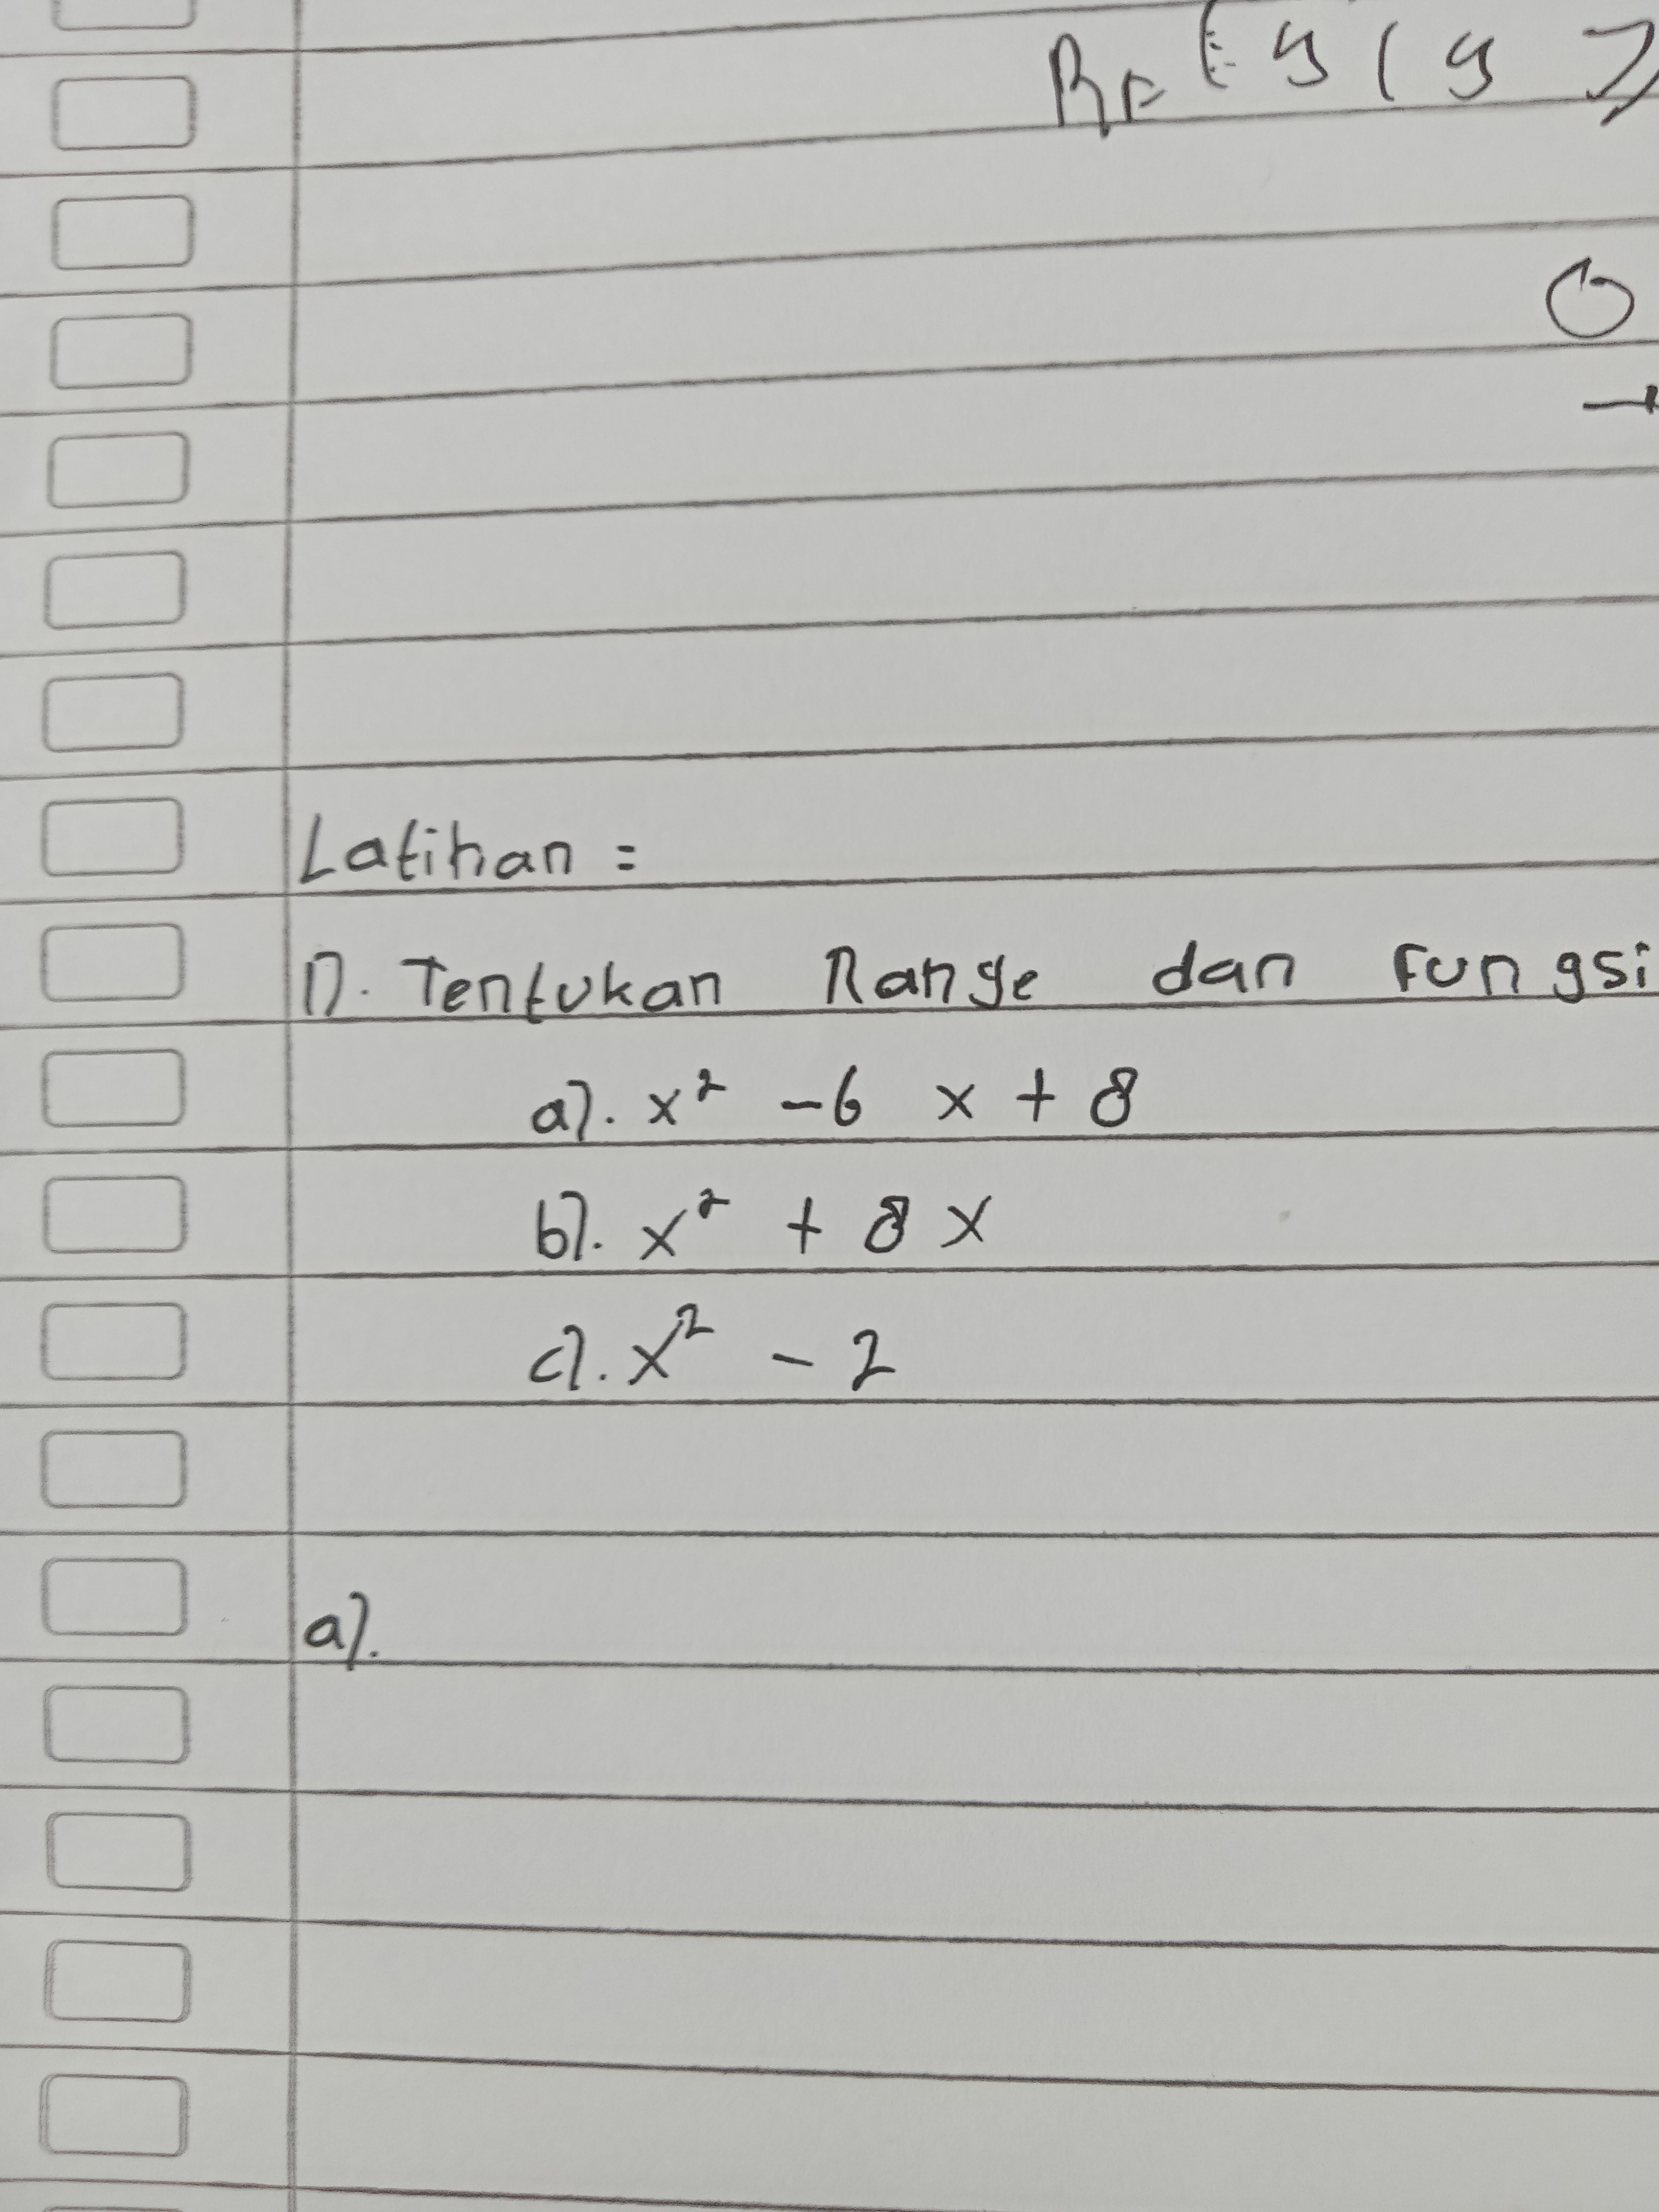 RF = { y | y ≥
Latihan =
1). Tentukan Range dan Fungsi
a). x² - 6 x + 8
b). x² + 8 x
c). x² - 2
a).